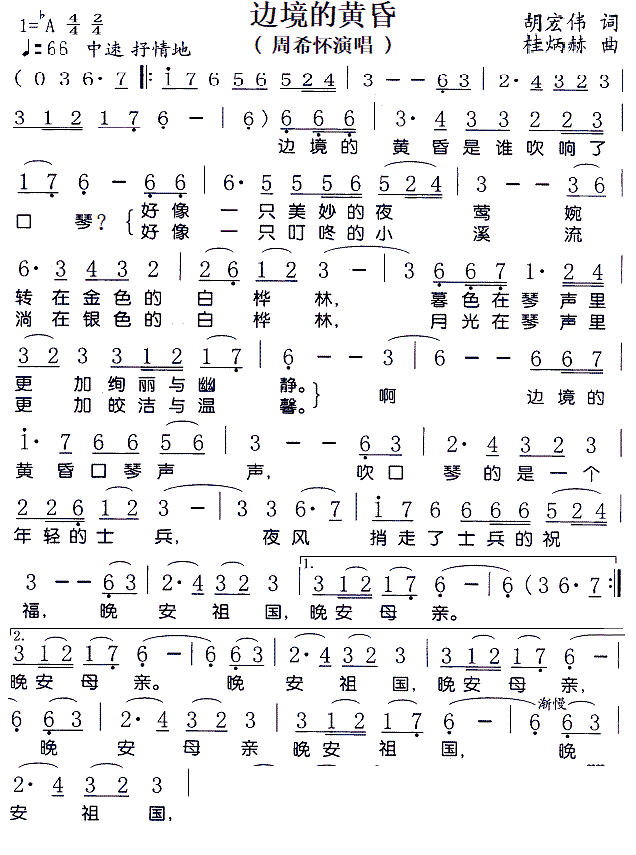 边境的黄昏
1=♭A 4/4 2/4
（周希怀演唱）
胡宏伟 词
♩=66 中速 抒情地
桂炳赫 曲
(0 3 6· 7 ‖: i 7 6 5 6 5 5 2 4 | 3 - - 6 3 | 2· 4 3 3 2 3 |
3 1 2 1 7 6 - | (6) 6 6 6 | 3· 4 3 3 2 2 3 |
边境的 黄昏是谁吹响了
1 7 6 - 6 6 | 6· 5 5 5 6 5 2 4 | 3 - - 3 6 |
口琴？ 好像 一只美妙的夜 莺 婉
好像 一只叮咚的小 溪 流
6· 3 4 3 2 | 2 6 1 2 3 - | 3 6 6 7 1· 2 4 |
转在金色的 白桦林， 暮色在琴声里
淌在银色的 白桦林， 月光在琴声里
3 2 3 3 1 2 1 7 | 6 - - 3 | 6 - - 6 6 7 |
更加绚丽与幽 静。 啊 边境的
更加皎洁与温 馨。
i· 7 6 6 5 6 | 3 - - 6 3 | 2· 4 3 3 2 |
黄昏口琴声 声， 吹口 琴的是一个
2 2 6 1 2 3 - | 3 3 6· 7 | i 7 6 6 6 6 5 2 4 |
年轻的士 兵， 夜风 捎走了士兵的祝
1.
3 - - 6 3 | 2· 4 3 2 3 | 3 1 2 1 7 6 - | 6 (3 6· 7 :‖
福， 晚 安祖国，晚安母亲。
2.
3 1 2 1 7 6 - | 6 6 3 | 2· 4 3 2 3 | 3 1 2 1 7 6 - |
晚安母亲。 晚 安祖国，晚安母亲，
渐慢
6 6 3 | 2· 4 3 2 3 | 3 1 2 1 7 | 6 - - - | 6 6 3 |
晚 安母亲晚安祖 国， 晚
2· 4 3 2 3 |
安祖国，